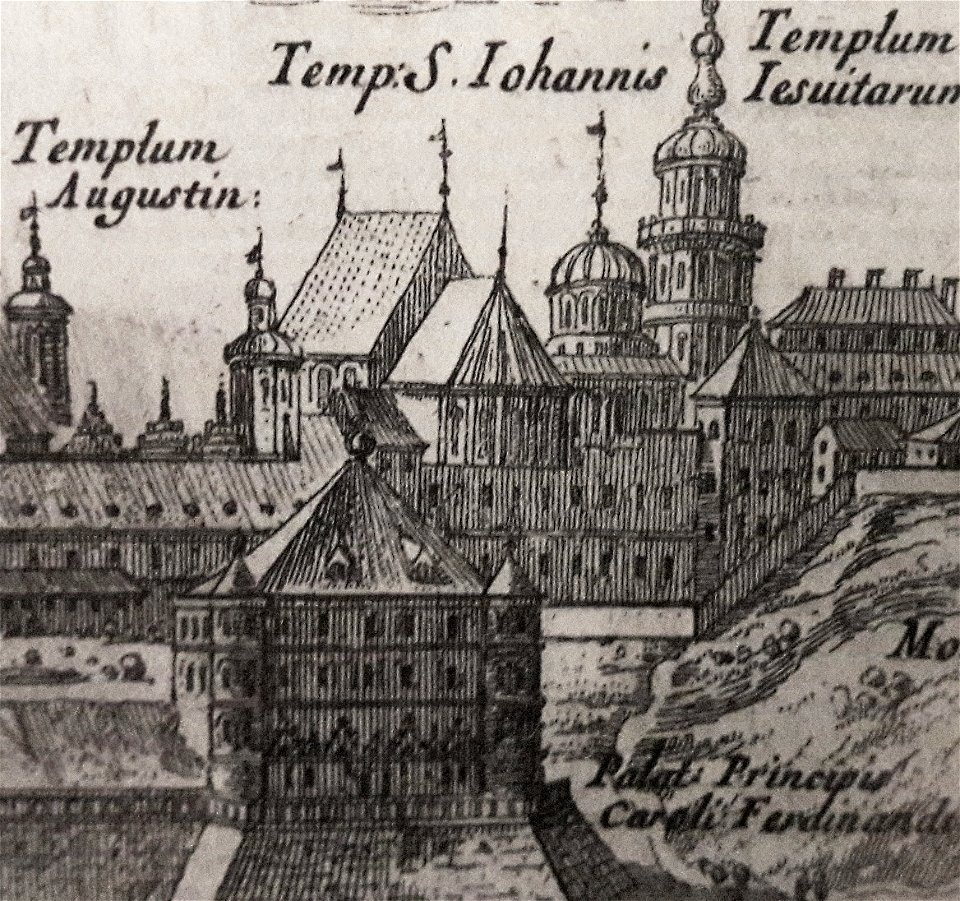 Templum
Augustin:
Temp: S. Iohannis
Templum
Iesuitarum
Mo
Palat: Principis
Caroli Ferdinande